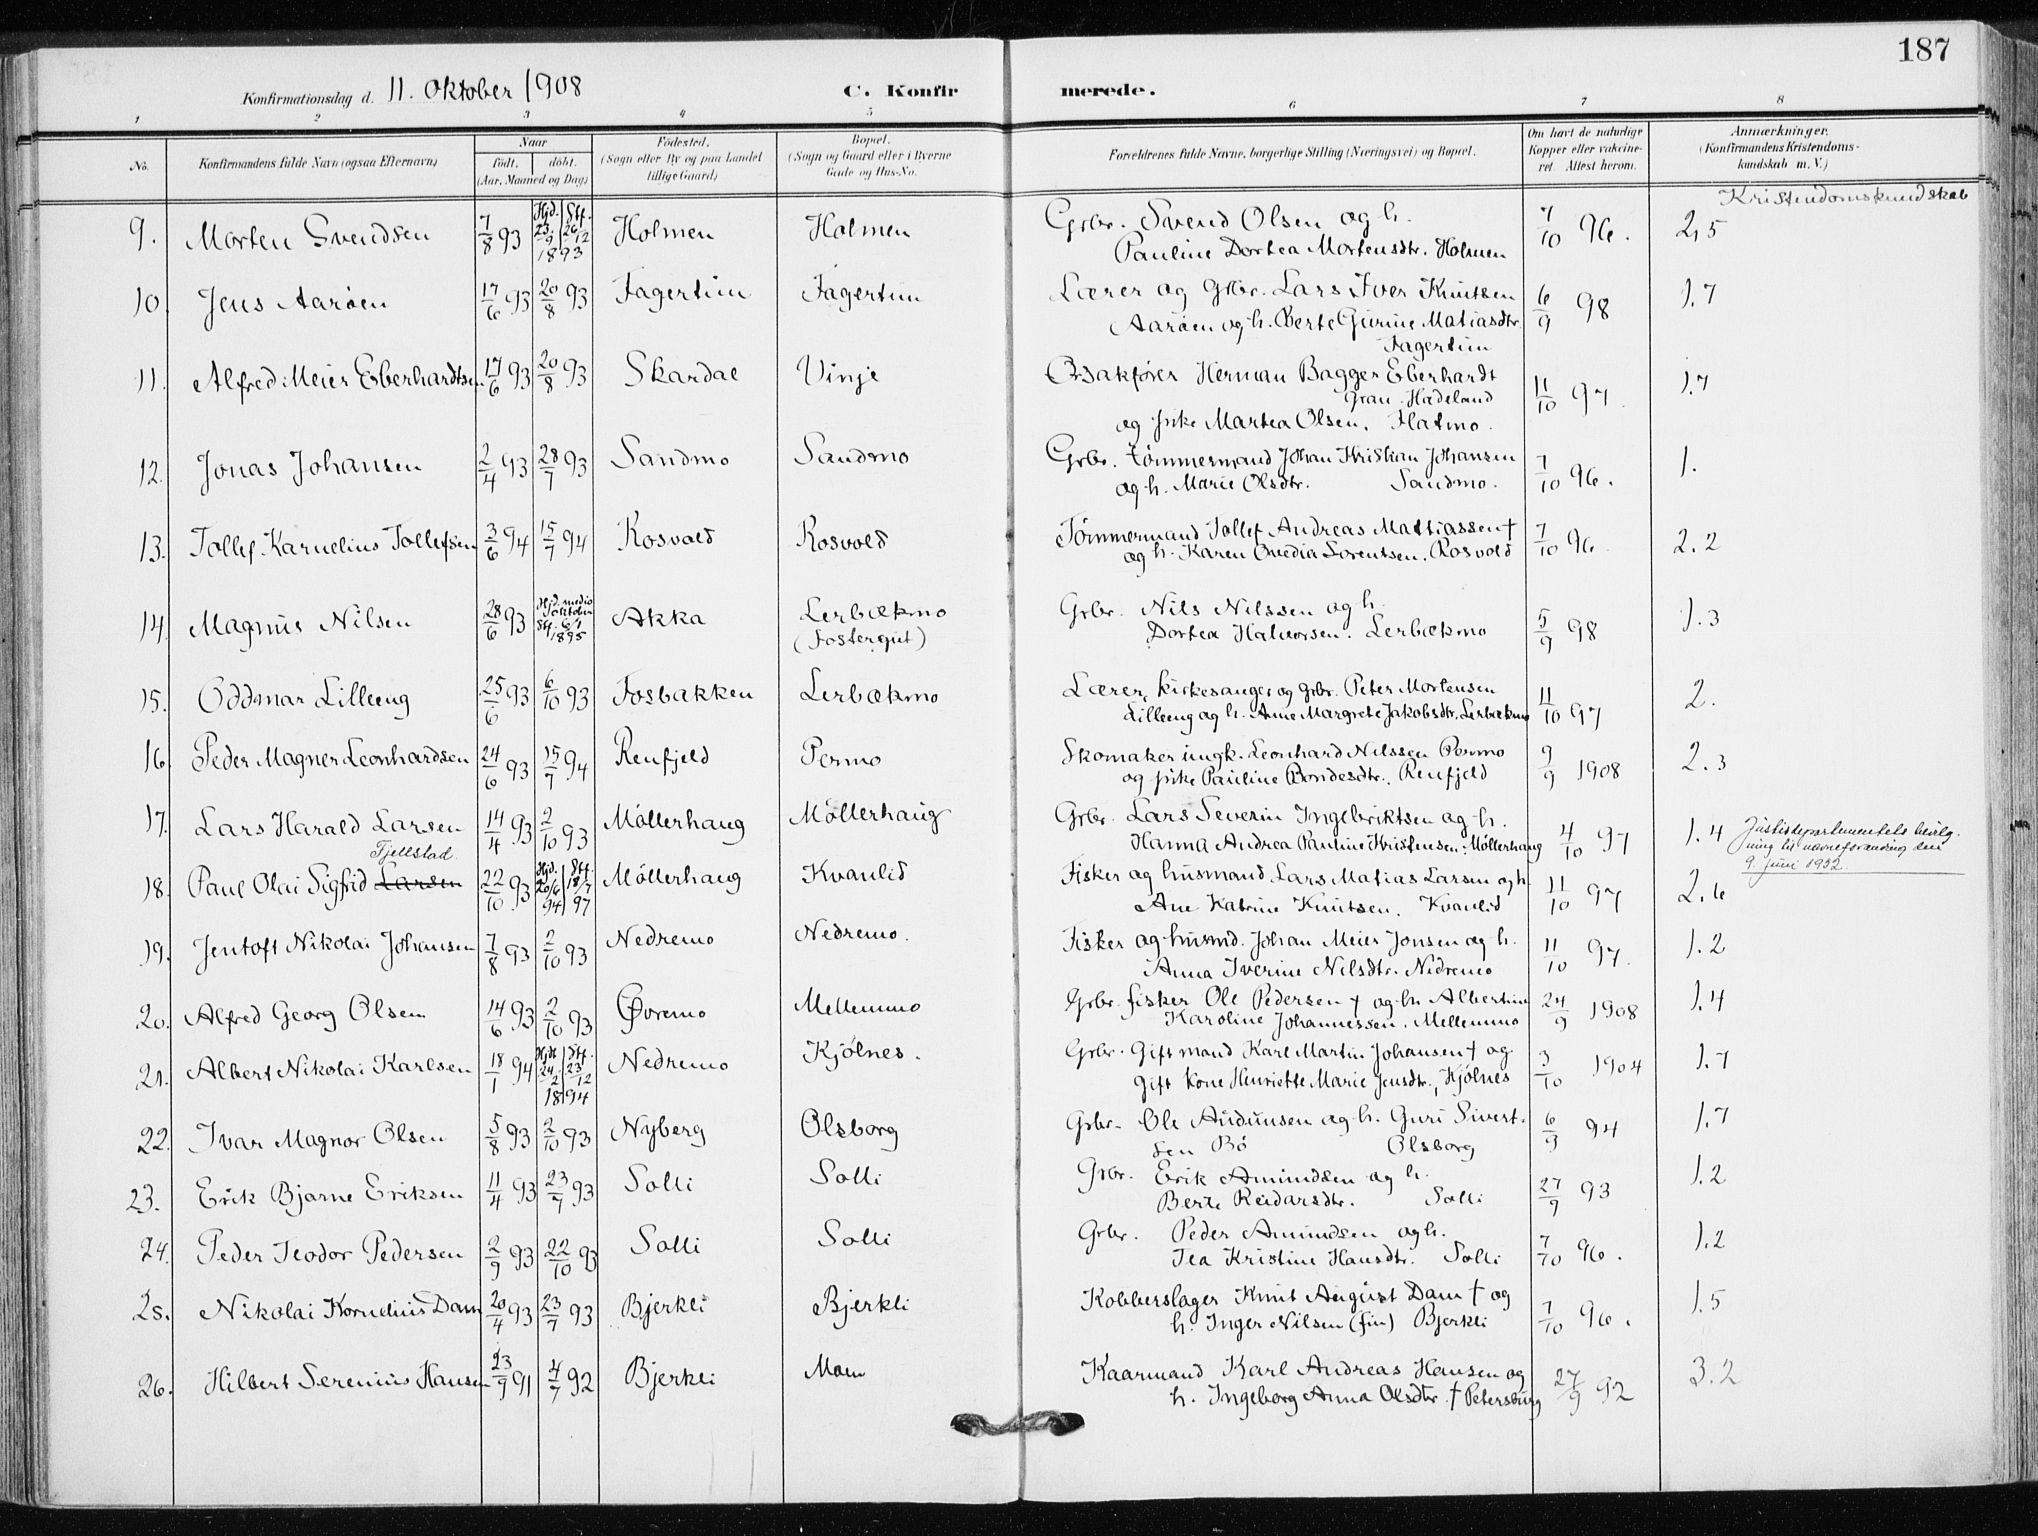 187
Konfirmationsdag d. 11. Oktober 1908 C. Konfirmerede.
1 2 3 4 5 6 7 8
No. Konfirmandens fulde Navn (ogsaa Efternavn) Naar født. døbt. (Aar, Maaned og Dag) Fødested. (Sogn eller By og paa Landet tillige Gaard) Bopæl. (Sogn og Gaard eller i Byerne Gade og Hus-No. Forældrenes fulde Navne, borgerlige Stilling (Næringsvei) og Bopæl. Om havt de naturlige Kopper eller vakcineret. Attest herom. Anmærkninger. (Konfirmandens Kristendomskundskab m. V.)
Kristendomskundskab
9. Morten Svendsen 7/8 93 Hjd. 23/9 Stf. 26/12 1893 Holmen Holmen Grbr. Svend Olsen og h. 7/10 96. 2,5
Pauline Dortea Mortensdtr. Holmen
10. Jens Aarøen 17/6 93 20/8 93 Fagertun Fagertun Lærer og Grbr. Lars Iver Knutsen 6/9 98 1.7
Aarøen og h. Berte Gurine Matiasdtr.
Fagertun
11. Alfred Meier Eberhardtsen 17/6 93 20/8 93 Skardal Vinje Ordsakfører Herman Bagger Eberhardt 11/10 97. 1.7
Gran Hadeland
og pike Martea Olsen. Flatmo.
12. Jonas Johansen 2/4 93 28/7 93 Sandmo Sandmo Grbr. tømmermand Johan Kristian Johansen 7/10 96. 1.
og h. Marie Olsdtr. Sandmo.
13. Tollef Karnelius Tollefsen 3/6 94 15/7 94 Rosvold Rosvold Tømmermand Tollef Andreas Mattiassen † 7/10 96. 2.2
og h. Karen Ovedia Sorentsen. Rosvold
14. Magnus Nilsen 28/6 93 Hjd. medio oktober Stf. 6/1 1895 Akka Lerbækmo Grbr. Nils Nilssen og h. 5/9 98 1.3
(Fostergut) Dortea Halvorsen. Lerbækmo
15. Oddmar Lilleeng 25/6 93 6/10 93 Fosbakken Lerbækmo Lærer, kirkesanger og grbr. Peter Mortensen 11/10 97 2.
Lilleeng og h. Anne Margrete Jakobsdtr. Lerbækmo
16. Peder Magner Leonhardsen 24/6 93 15/7 94 Renfjeld Permo Skomaker ungk. Leonhard Nilssen Permo 9/9 1908 2.3
og pike Pauline Bondesdtr. Renfjeld
17. Lars Harald Larsen 14/4 93 2/10 93 Möllerhaug Möllerhaug Grbr. Lars Severin Ingebriktsen og h. 4/10 97 1.4
Hanna Andrea Pauline Kristensen. Møllerhaug
Fjellstad. Justisdepartementets bevilgning til navneforandring den 9. juni 1932.
18. Paul Olai Sigfrid Larsen 22/10 93 Hjd. 20/6 94 Stf. 18/7 97 Möllerhaug Kvanlid Fisker og husmand Lars Matias Larsen og h. 11/10 97 2.6
Ane Katrine Knutsen. Kvanlid
19. Jentoft Nikolai Johansen 7/8 93 2/10 93 Nedremo Nedremo. Fisker og husmd. Johan Meier Jonsen og h. 11/10 97. 1.2
Anna Iverine Nilsdtr. Nedremo
20. Alfred Georg Olsen 14/6 93 2/10 93 Øvremo Mellemmo Grbr. fisker Ole Pedersen † og h. Albertine 24/9 1908 1.4
Karoline Johannessen. Mellemmo
21. Albert Nikolai Karlsen 18/1 94 Hjd. 24/2 Stf. 23/12 1894 Nedremo Kjölnes. Grbr. Gift mand Karl Martin Johansen † og 3/10 1904 1.7
gift kone Henriette Marie Jensdtr., Kjölnes
22. Ivar Magnor Olsen 5/8 93 2/10 93 Nyberg Olsborg Grbr. Ole Audunsen og h. Guri Sivert- 6/9 94 1.7
sen Bö Olsborg
23. Erik Bjarne Eriksen 11/4 93 23/7 93 Solli Solli Grbr. Erik Amundsen og h. 27/9 93 1.2
Berte Reidarsdtr. Solli
24. Peder Teodor Pedersen 2/9 93 22/10 93 Solli Solli Grbr. Peder Amundsen og h. 7/10 96. 1.2
Tea Kristine Hansdtr. Solli
25. Nikolai Kornelius Dam 20/4 93 23/7 93 Bjerkli Bjerkli Kobberslager Knut August Dam † og 7/10 96. 1.5
h. Inger Nilsen (fin) Bjerkli
26. Hilbert Serenius Hansen 23/9 91 4/7 92 Bjerkli Moen Kaarmand Karl Andreas Hansen og 27/9 92 3.2
h. Ingeborg Anna Olsdtr † Petersburg